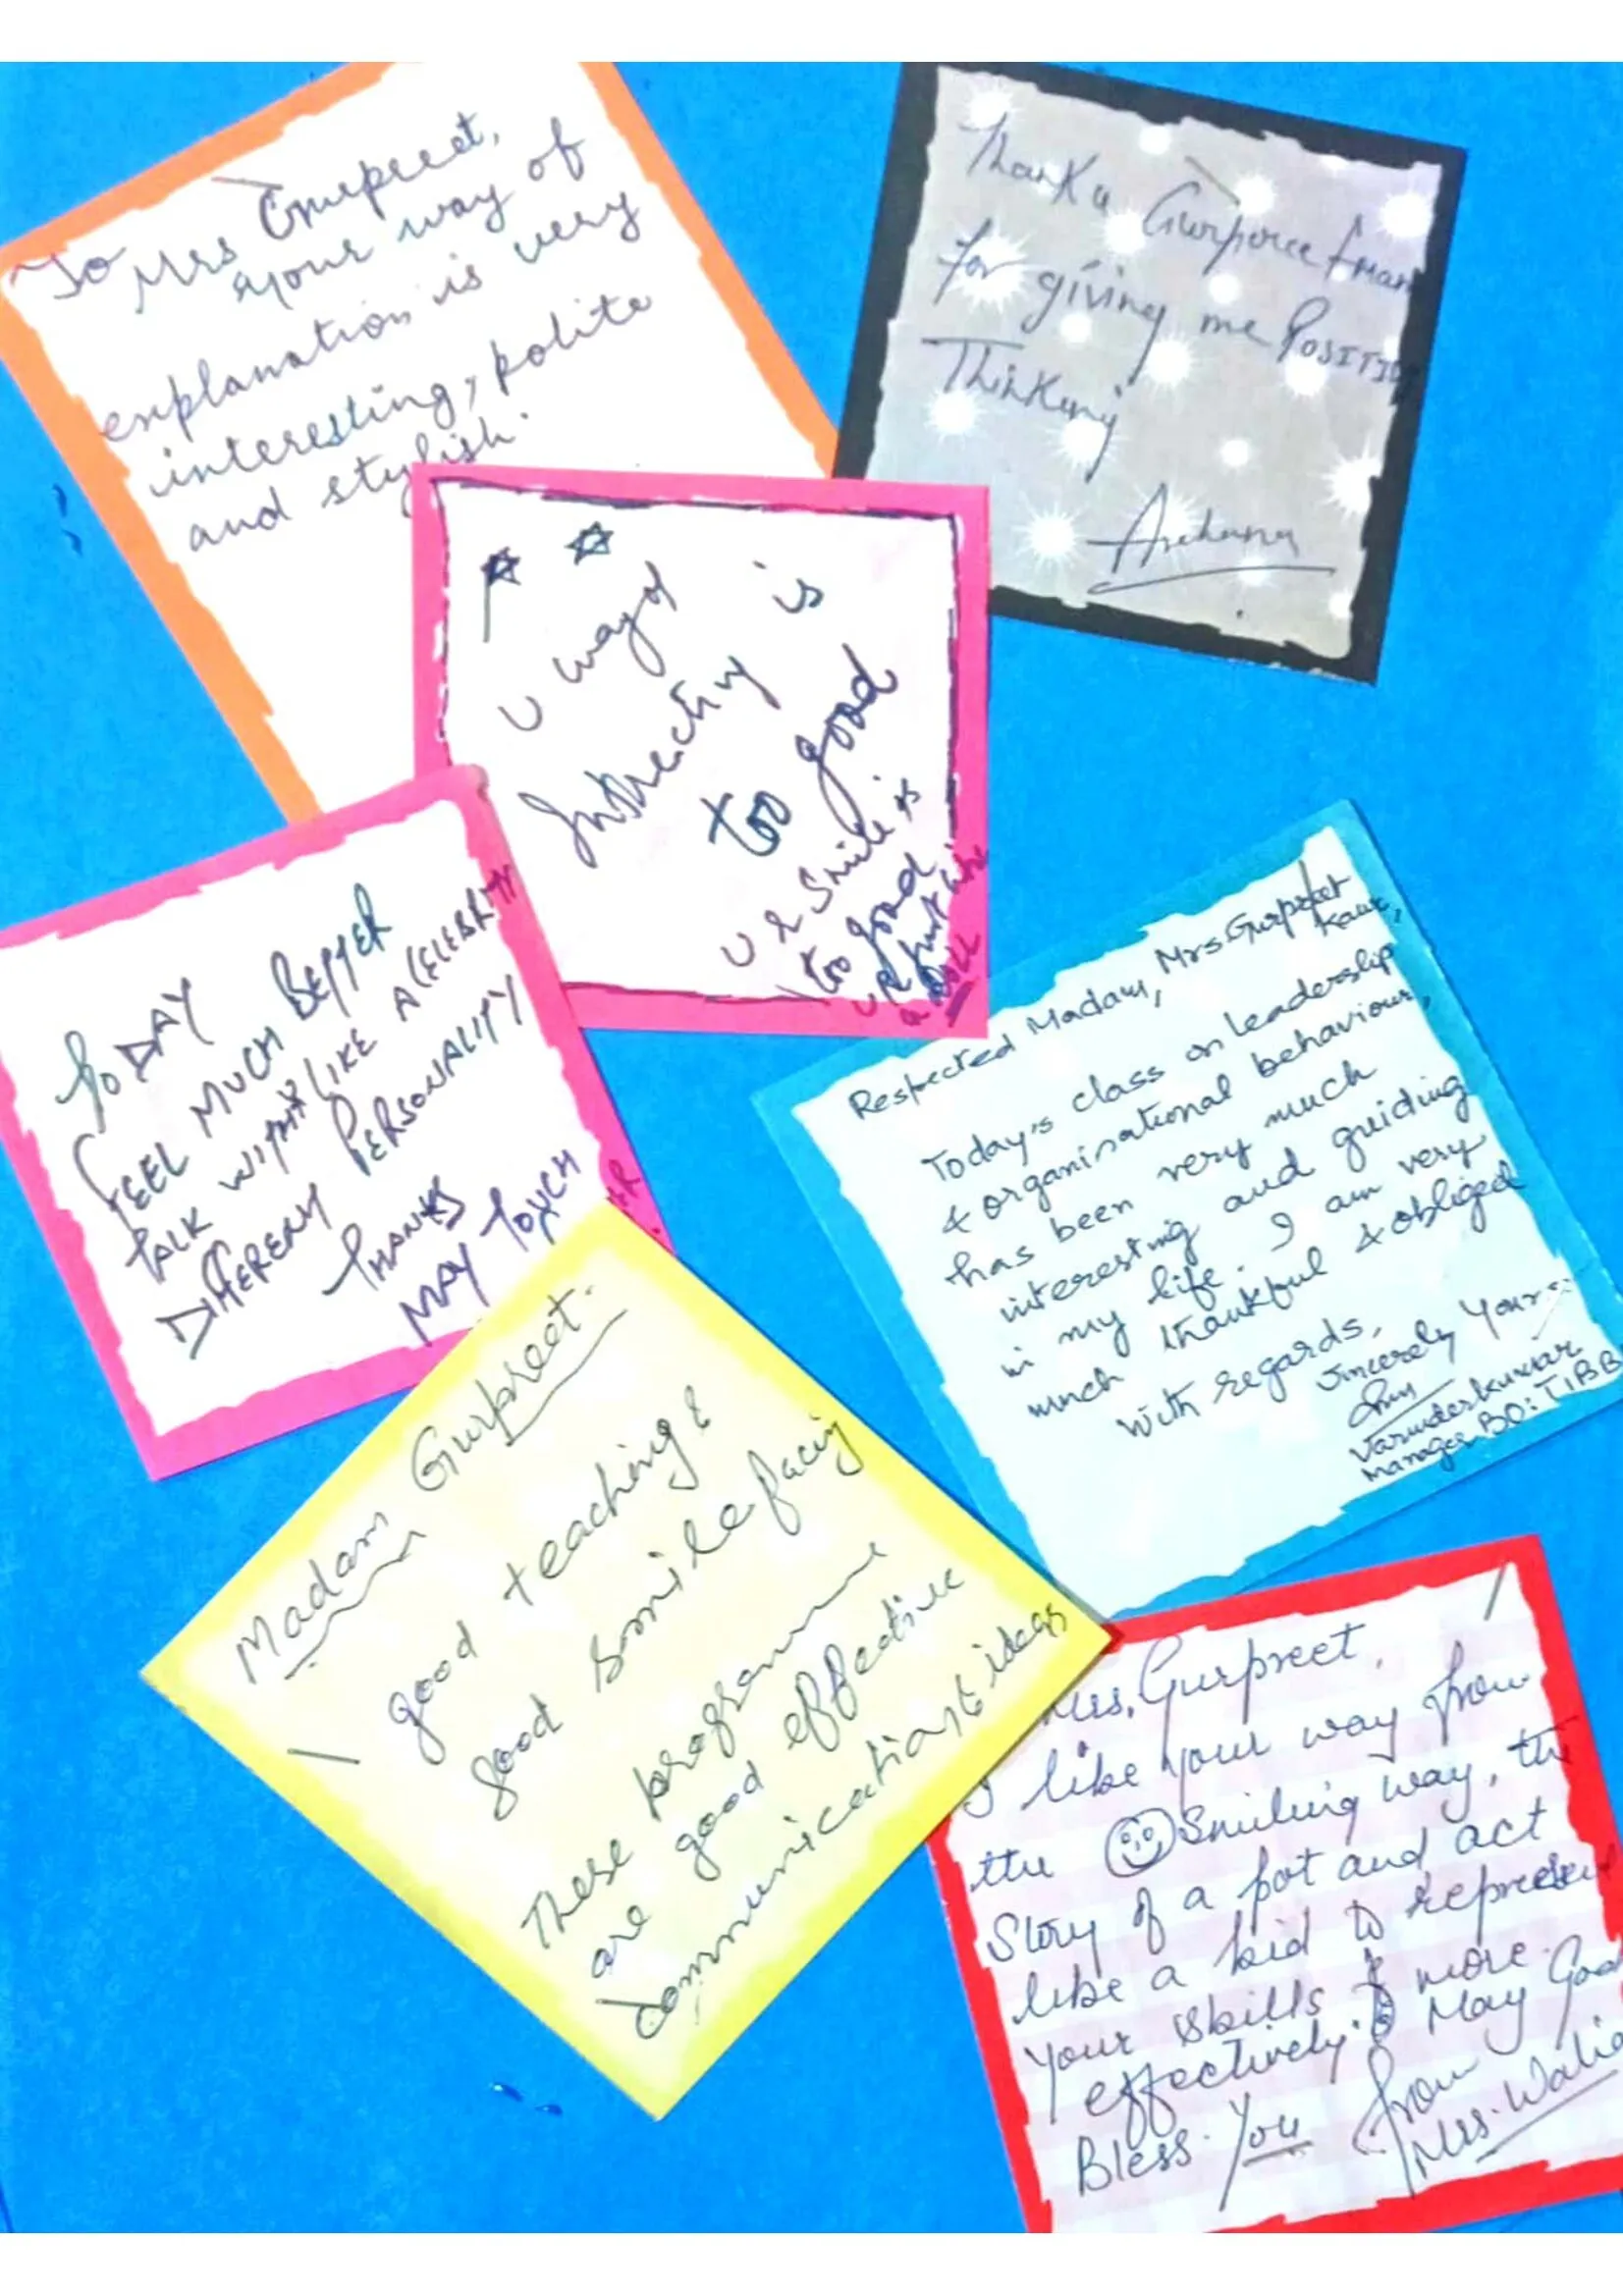 To Mrs Gurpreet,
your way of
explanation is very
interesting, polite
and stylish.
Thank u Gurpreet
for giving me
Thinking
Archana
U way of
Instructing is
too good
U R Smile is
too good
UR just like
a DOLL
TODAY
FEEL MUCH BETTER
TALK WITH LIKE A CELEBRITY
DIFFERENT PERSONALITY
THANKS
MAY TOUCH
Respected Madam, Mrs Gurpreet
Kaur,
Today's class on leadership
& organisational behaviour,
has been very much
interesting and guiding
in my life. I am very
much thankful & obliged
With regards,
Sincerely Yours
Varinder Kumar
Manager BO: TIBB
Madam Gurpreet.
good teaching &
good smile facing
These programme
are good effective
communication & ideas
Mrs. Gurpreet,
I like your way from
the Smiling way, the
Story of a pot and act
like a kid to represent
your skills more
effectively. May God
Bless You from
Mrs. Walia